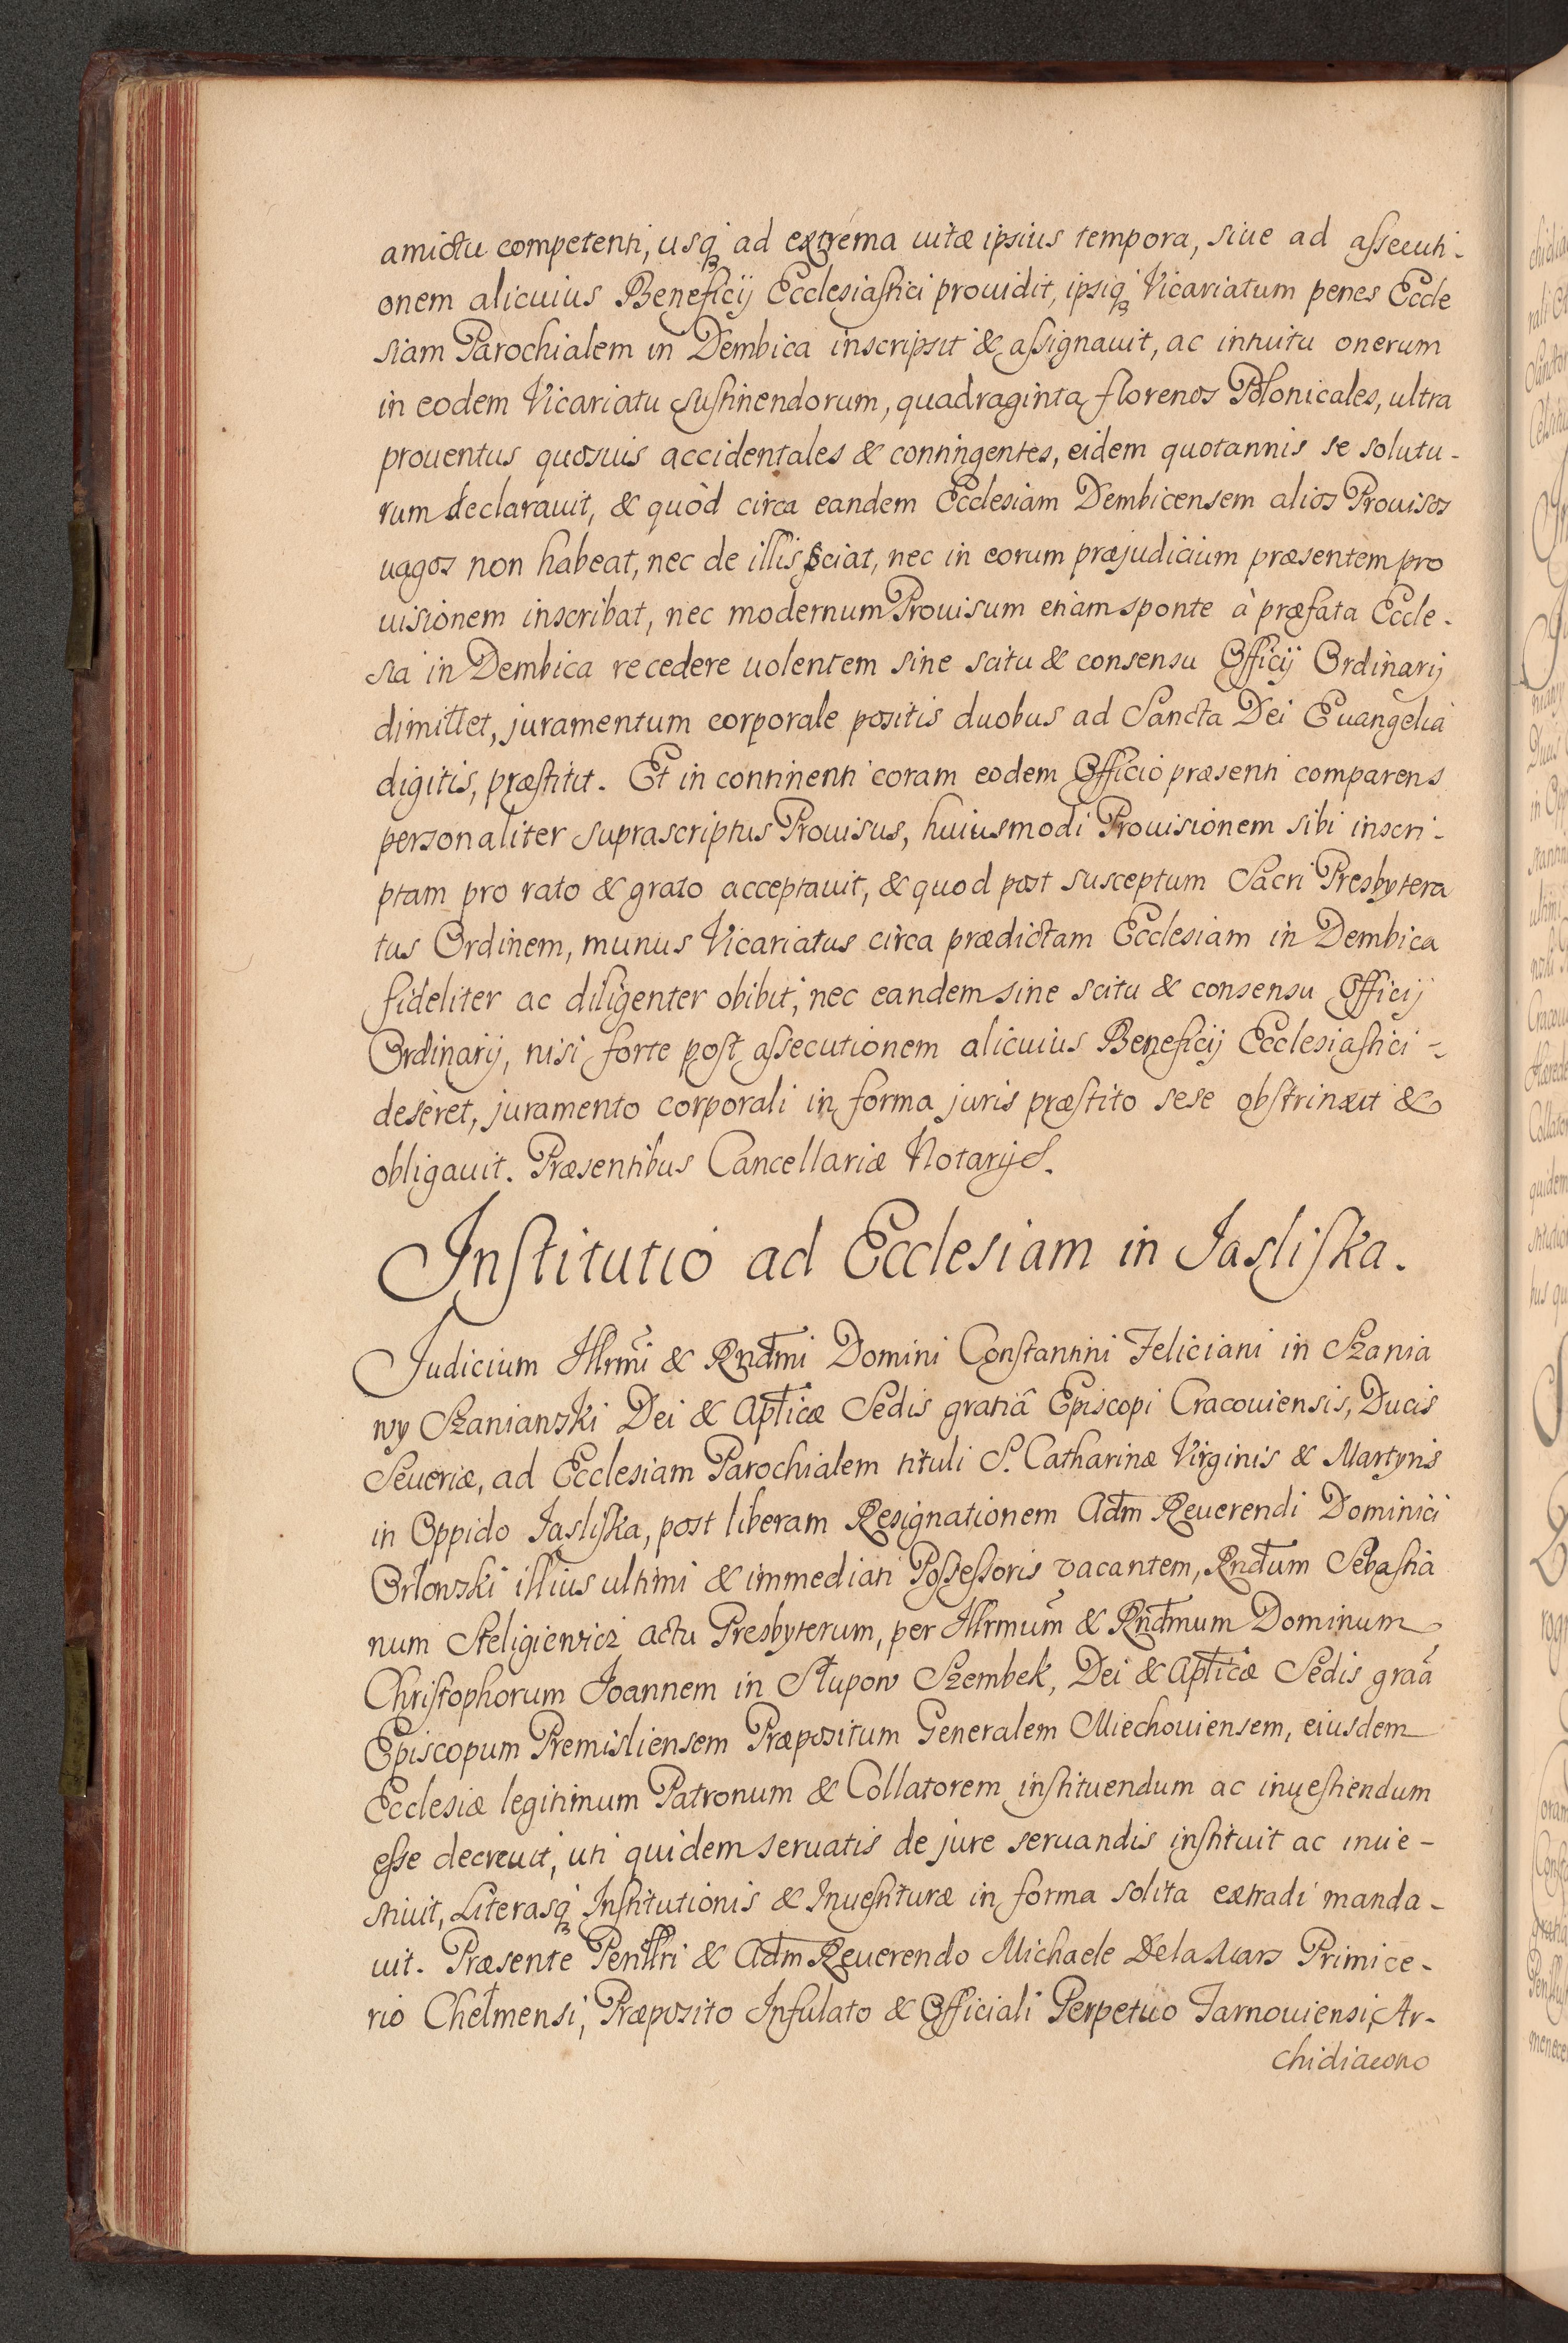 amictu competenti, usq; ad extrema uitæ ipsius tempora, siue ad assecuti-
onem alicuius Beneficij Ecclesiastici prouidit, ipsiq; Vicariatum penes Eccle
siam Parochialem in Dembica inscripsit & assignauit, ac intuitu onerum
in eodem Vicariatu sustinendorum, quadraginta florenos Polonicales, ultra
prouentus quosuis accidentales & contingentes, eidem quotannis se solutu-
rum declarauit, & quòd circa eandem Ecclesiam Dembicensem alios Prouisos
uagos non habeat, nec de illis sciat, nec in eorum præjudicium præsentem pro
uisionem inscribat, nec modernum Prouisum etiam sponte à præfata Eccle-
sia in Dembica recedere uolentem sine scitu & consensu Officij Ordinarij
dimittet, juramentum corporale positis duobus ad Sancta Dei Euangelia
digitis, præstitit. Et in continenti coram eodem Officio præsenti comparens
personaliter suprascriptus Prouisus, huiusmodi Prouisionem sibi inscri-
ptam pro rato & grato acceptauit, & quod post susceptum Sacri Presbytera
tus Ordinem, munus Vicariatus circa prædictam Ecclesiam in Dembica
fideliter ac diligenter obibit, nec eandem sine scitu & consensu Officij
Ordinarij, nisi forte post assecutionem alicuius Beneficij Ecclesiastici -
deseret, juramento corporali in forma juris præstito sese obstrinxit &
obligauit. Præsentibus Cancellariæ Notarijs.
Institutio ad Ecclesiam in Jasliska.
Judicium Illrmi & Rndmi Domini Constantini Feliciani in Szania
wy Szaniawski Dei & Aplicæ Sedis gratiâ Episcopi Cracouiensis, Ducis
Seueriæ, ad Ecclesiam Parochialem tituli S. Catharinæ Virginis & Martyris
in Oppido Jasliska, post liberam Resignationem Adm Reuerendi Dominici
Orłowski illius ultimi & immediati Possessoris vacantem, Rndum Sebastia
num Steligiewicz actu Presbyterum, per Illrmum & Rndmum Dominum
Christophorum Joannem in Słupow Szembek, Dei & Aplicæ Sedis graã
Episcopum Premisliensem Præpositum Generalem Miechouiensem, eiusdem
Ecclesiæ legitimum Patronum & Collatorem instituendum ac inuestiendum
esse decreuit, uti quidem seruatis de jure seruandis instituit ac inue-
stiuit, Literasq; Institutionis & Inuestituræ in forma solita extradi manda-
uit. Præsente Penllri & Adm Reuerendo Michaele Dela Mars Primice-
rio Chełmensi, Præposito Infulato & Officiali Perpetuo Tarnouiensi, Ar-
chidiacono